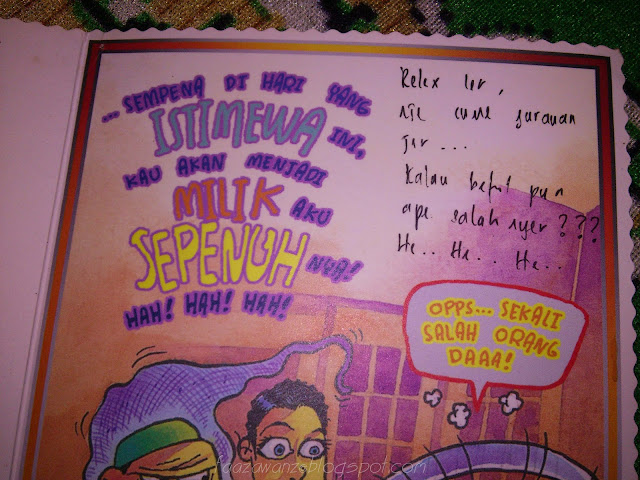 ... SEMPENA DI HARI YANG
ISTIMEWA INI,
KAU AKAN MENJADI
MILIK AKU
SEPENUH NYA!
HAH! HAH! HAH!
Relex ler,
nie cume gurauan
jer...
Kalau betul pun
ape salah nyer???
He.. He.. He..
OPPS... SEKALI
SALAH ORANG
DAAA!
faazawanzy.blogspot.com